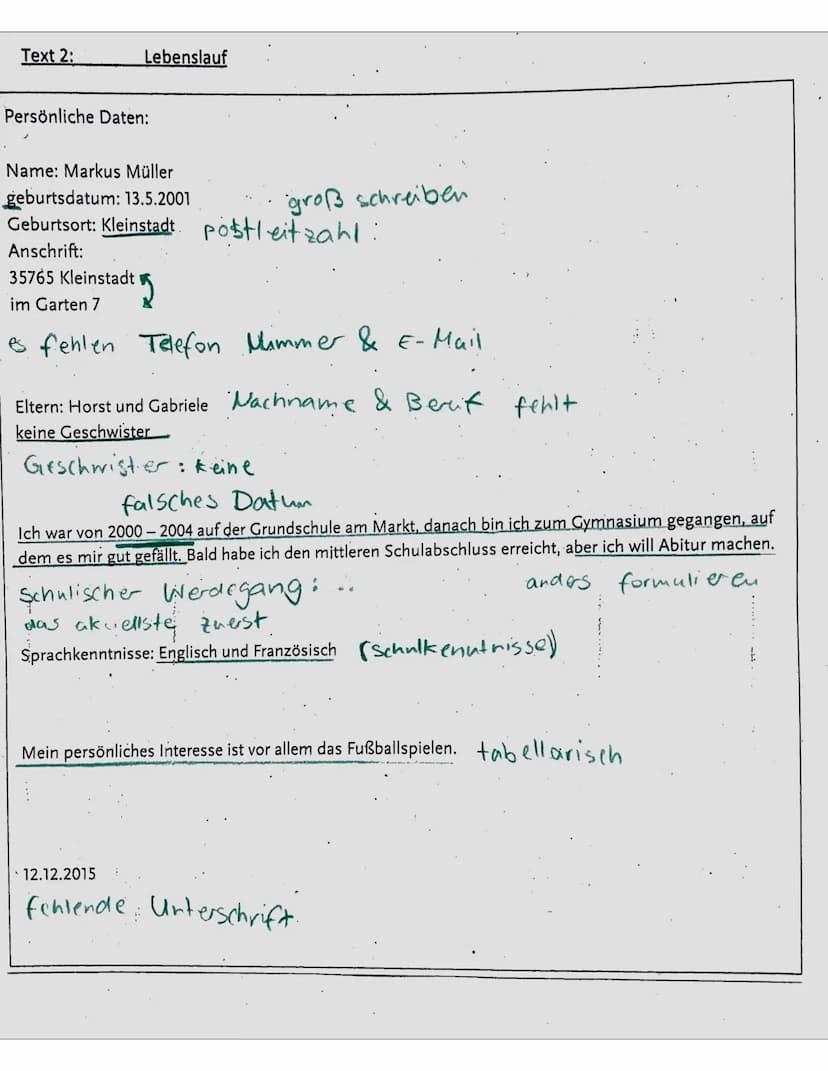 Text 2: Lebenslauf
Persönliche Daten:
Name: Markus Müller
geburtsdatum: 13.5.2001 groß schreiben
Geburtsort: Kleinstadt postleitzahl :
Anschrift:
35765 Kleinstadt
im Garten 7
es fehlen Telefon Nummer & E-Mail
Eltern: Horst und Gabriele Nachname & Beruf fehlt
keine Geschwister
Geschwister : keine
falsches Datum
Ich war von 2000 – 2004 auf der Grundschule am Markt, danach bin ich zum Gymnasium gegangen, auf
dem es mir gut gefällt. Bald habe ich den mittleren Schulabschluss erreicht, aber ich will Abitur machen.
Schulischer Werdegang : .. anders formulieren
das aktuellste zuerst
Sprachkenntnisse: Englisch und Französisch (Schulkenntnisse)
Mein persönliches Interesse ist vor allem das Fußballspielen. tabellarisch
12.12.2015
fehlende Unterschrift.